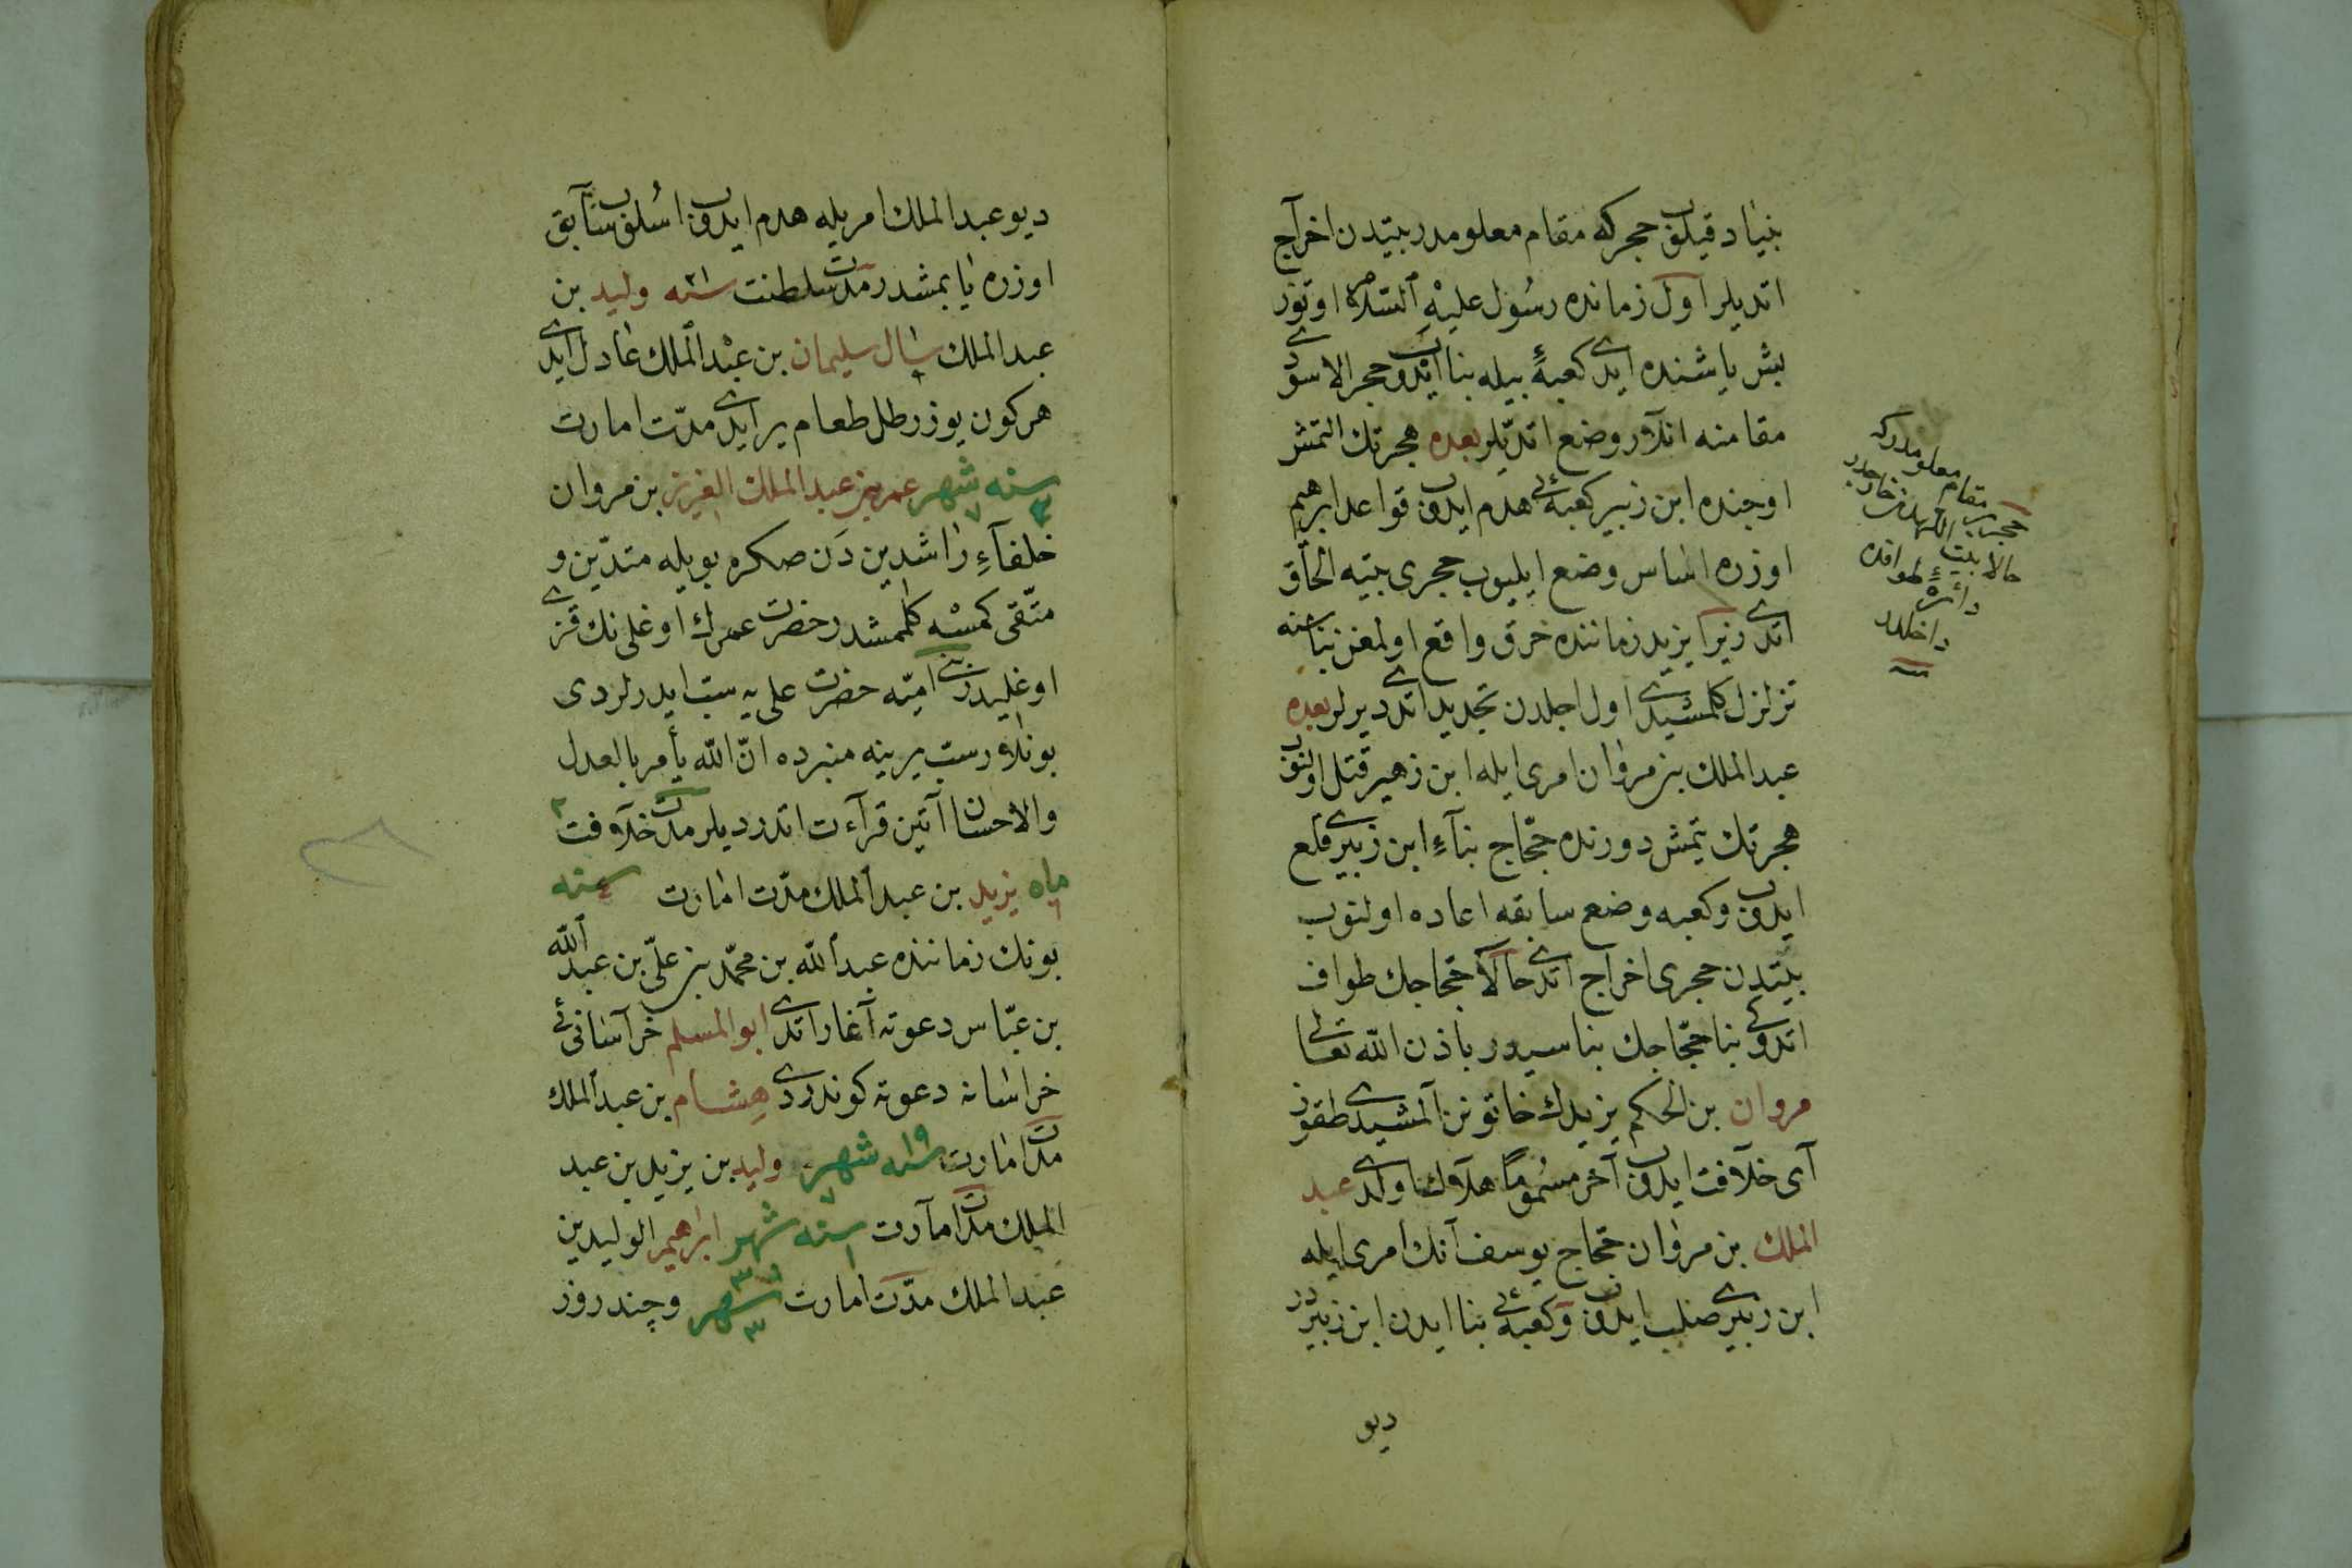 بنیاد قیلوب حجر که مقام معلومدر بیتدن اخراج
اتدیلر اول زمانده رسول علیه السلام اوتوز
بش یاشنده ایدی کعبهٔ بیله بنا ایدوب حجر الاسودی
مقامنه انلار وضع اتدیلر بعده هجرتك التمش
اوچنده ابن زبیر کعبه‌ئی هدم ایدوب قواعد ابرهیم
اوزره اساس وضع ایلیوب حجری بیته الحاق
اتدی زیرا یزید زماننده خرق واقع اولمغن بناسنه
تزلزل کلمشیدی اول اجلدن تجدید اتدی دیرلر بعده
عبد الملك بن مروان امری ایله ابن زهیر قتل اولنوب
هجرتك یتمش دورنده حجاج بناء ابن زبیری قلع
ایدوب و کعبه وضع سابقه اعاده اولنوب
بیتدن حجری اخراج اتدی حالا حجاجك طواف
اتدوکی بنا حجاجك بناسیدر باذن الله تعالی
مروان بن الحکم یزیدك خاتونن المشیدی طقوز
آی خلافت ایدوب آخر مسموما هلاك اولدی عبد
الملك بن مروان حجاج یوسف آنك امری ایله
ابن زبیری صلب ایدوب و کعبه‌ئی بنا ایدن ابن زبیردر
دیو
مقام معلومدر که
خارجدر
حالا بیت
طوافده
دائرهٔ
داخلدر
دیو عبد الملك امریله هدم ایدوب اسلوب سابق
اوزره یاپمشدر مدت سلطنت سنه ٢١ ولید بن
عبد الملك سلیمان بن عبد الملك عادل ایدی
هر کون یوز رطل طعام یر ایدی مدت امارت
سنه شهر ٧ عمر بن عبد الملك العزیز بن مروان
خلفاء راشدین دن صکره بویله متدین و
متقی کمسه کلممشدر حضرت عمرك اوغلی نك قزی
اوغلیدر بنی امیه حضرت علی یه سب ایدرلردی
بونلار سب یرینه منبرده ان الله یأمر بالعدل
والاحسان آیتین قرآءت اتدردیلر مدت خلافت ٢
ماه یزید بن عبد الملك مدت امارت سنه
بونك زماننده عبد الله بن محمد بن علی بن عبد الله
بن عباس دعوته آغاز اتدی ابو المسلم خراسانی‌ئی
خراسانه دعوته کوندردی هشام بن عبد الملك
مدت امارت سنه ١٩ شهر ٧ ولید بن یزید بن عبد
الملك مدت امارت سنه ١ شهر ٣ ابراهیم الولید بن
عبد الملك مدت امارت شهر ٣ و چند روز